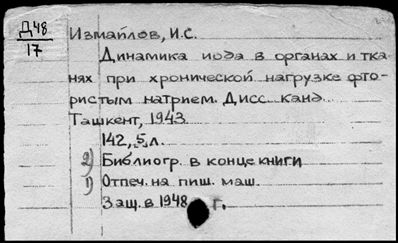 Д48
17
Измайлов, И.С.
Динамика иода в органах и тка
нях при хронической нагрузке фто-
ристым натрием. Дисс. канд.
Ташкент, 1943
142, 5 л.
2) Библиогр. в конце книги
1) Отпеч. на пиш. маш.
Защ. в 1948 г.